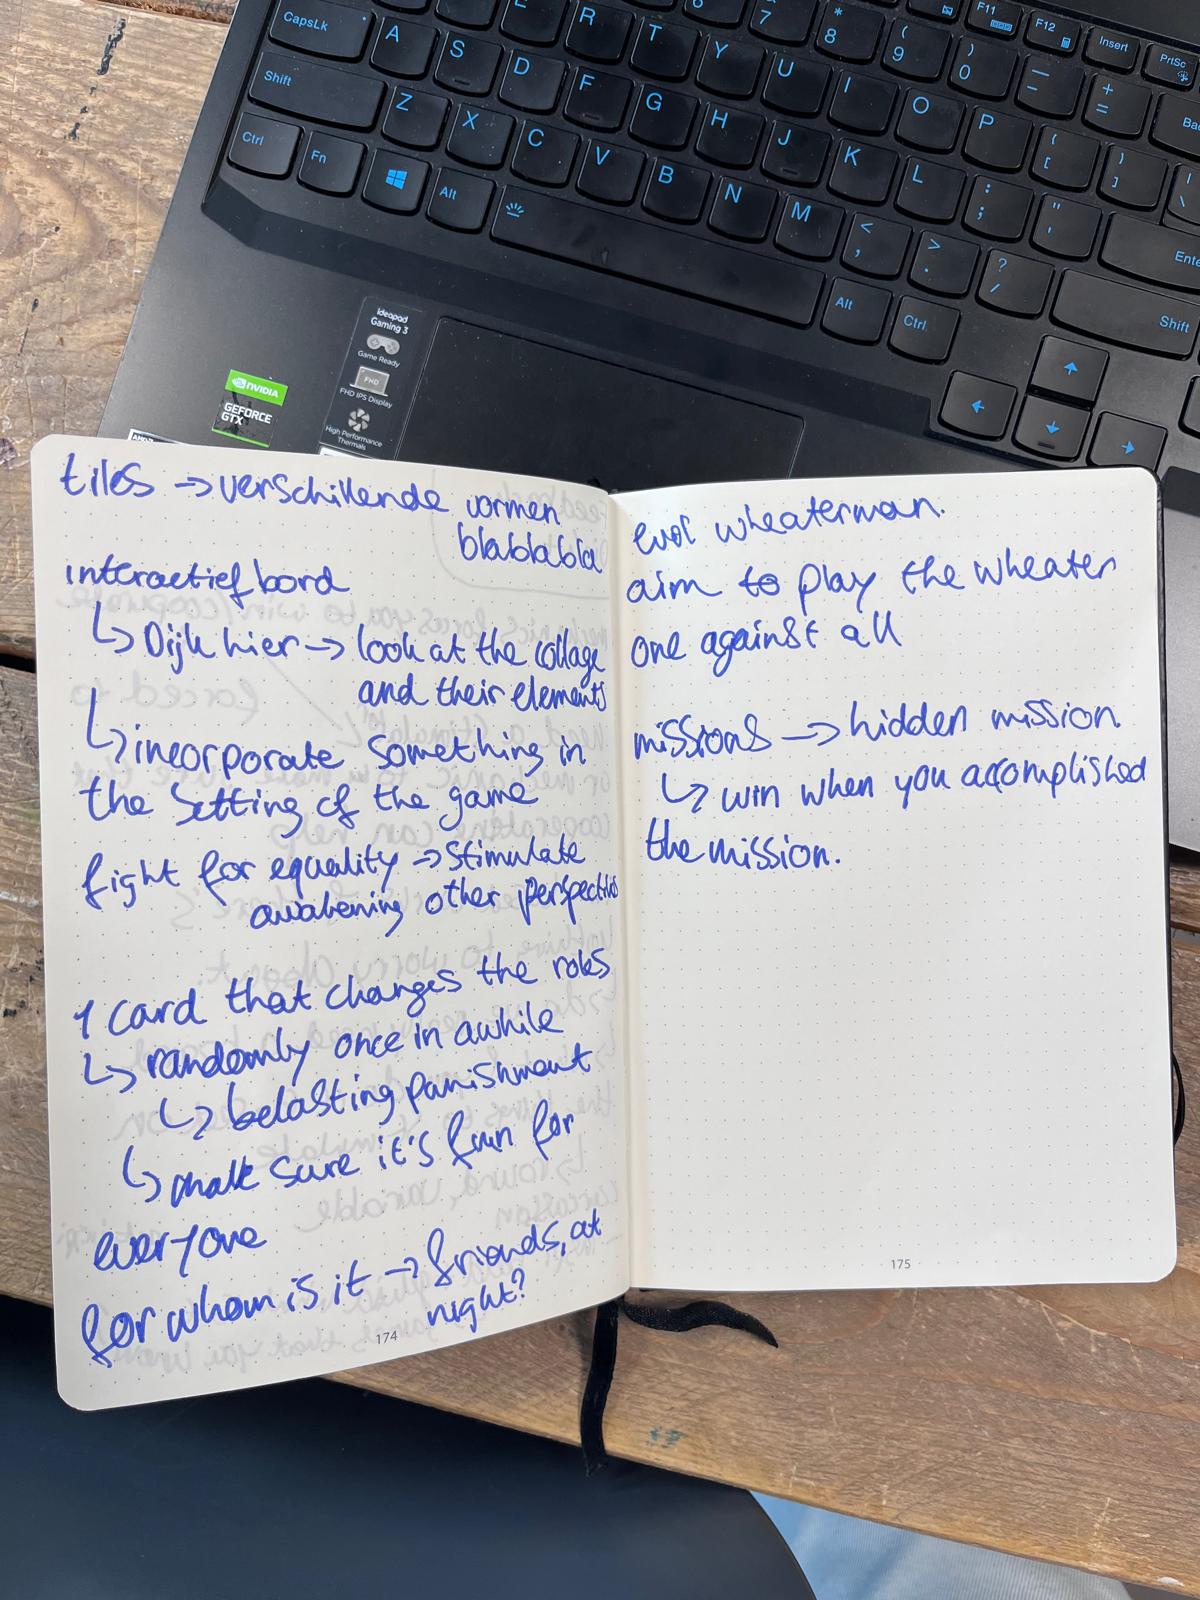 CapsLk
A
S
D
F
G
H
J
K
L
E
R
T
Y
U
I
O
P
Shift
Z
X
C
V
B
N
M
Ctrl
Fn
Alt
Alt
Ctrl
Shift
Insert
PrtSc
F11
F12
7
* 8
( 9
) 0
+ =
< ,
> .
? /
: ;
" '
ideapad
Gaming 3
Game Ready
FHD
FHD IPS Display
High Performance
Thermals
NVIDIA
GEFORCE
GTX
tiles → verschillende vormen
blablabla
interactief bord
↳ Dijk hier → look at the collage
and their elements
↳ incorporate something in
the setting of the game
fight for equality → stimulate
awakening other perspectives
1 card that changes the roles
↳ randomly once in awhile
↳ belasting punishment
↳ make sure it's fun for
everyone
for whom is it → friends, at
night?
174
evil wheaterman.
aim to play the wheater
one against all
missions → hidden mission.
↳ win when you accomplished
the mission.
175